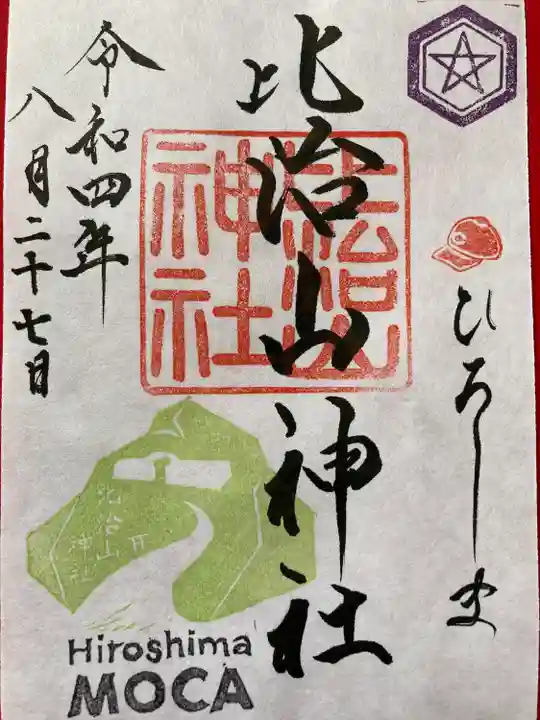 ひろしま
比治山神社
比治山
神社
令和四年
八月二十七日
比治山
神社
Hiroshima
MOCA